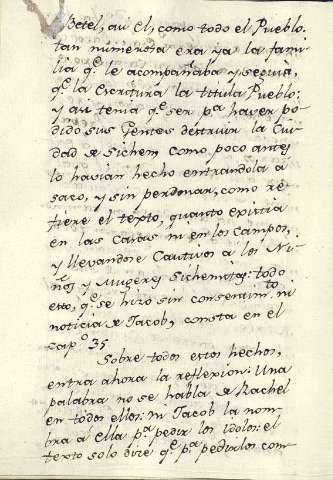 Betel, asi él, como todo el Pueblo:
tan numerosa era ya la fami
lia q.e le acompañaba y seguia,
q.e la Escritura la titula Pueblo:
y asi tenia q.e ser p.a haver po
dido sus Gentes destruir la Ciu
dad de Sichem como poco antes
lo havian hecho entrandola á
saco, y sin perdonar, como re
fiere el texto, quanto existia
en las Casas ni en los campos,
y llevandose Cautivos a los Ni
ños y Mugeres Sichemitas: todo
esto, q.e se hizo sin consentim.to ni
noticia de Jacob, consta en el
cap.o 35.
Sobre todos estos hechos,
entra ahora la reflexion: Una
palabra no se habla de Rachel
en todos ellos: ni Jacob la nom
bra á ella p.a pedir los idolos: el
texto solo dice q.e p.a pedirlos con-